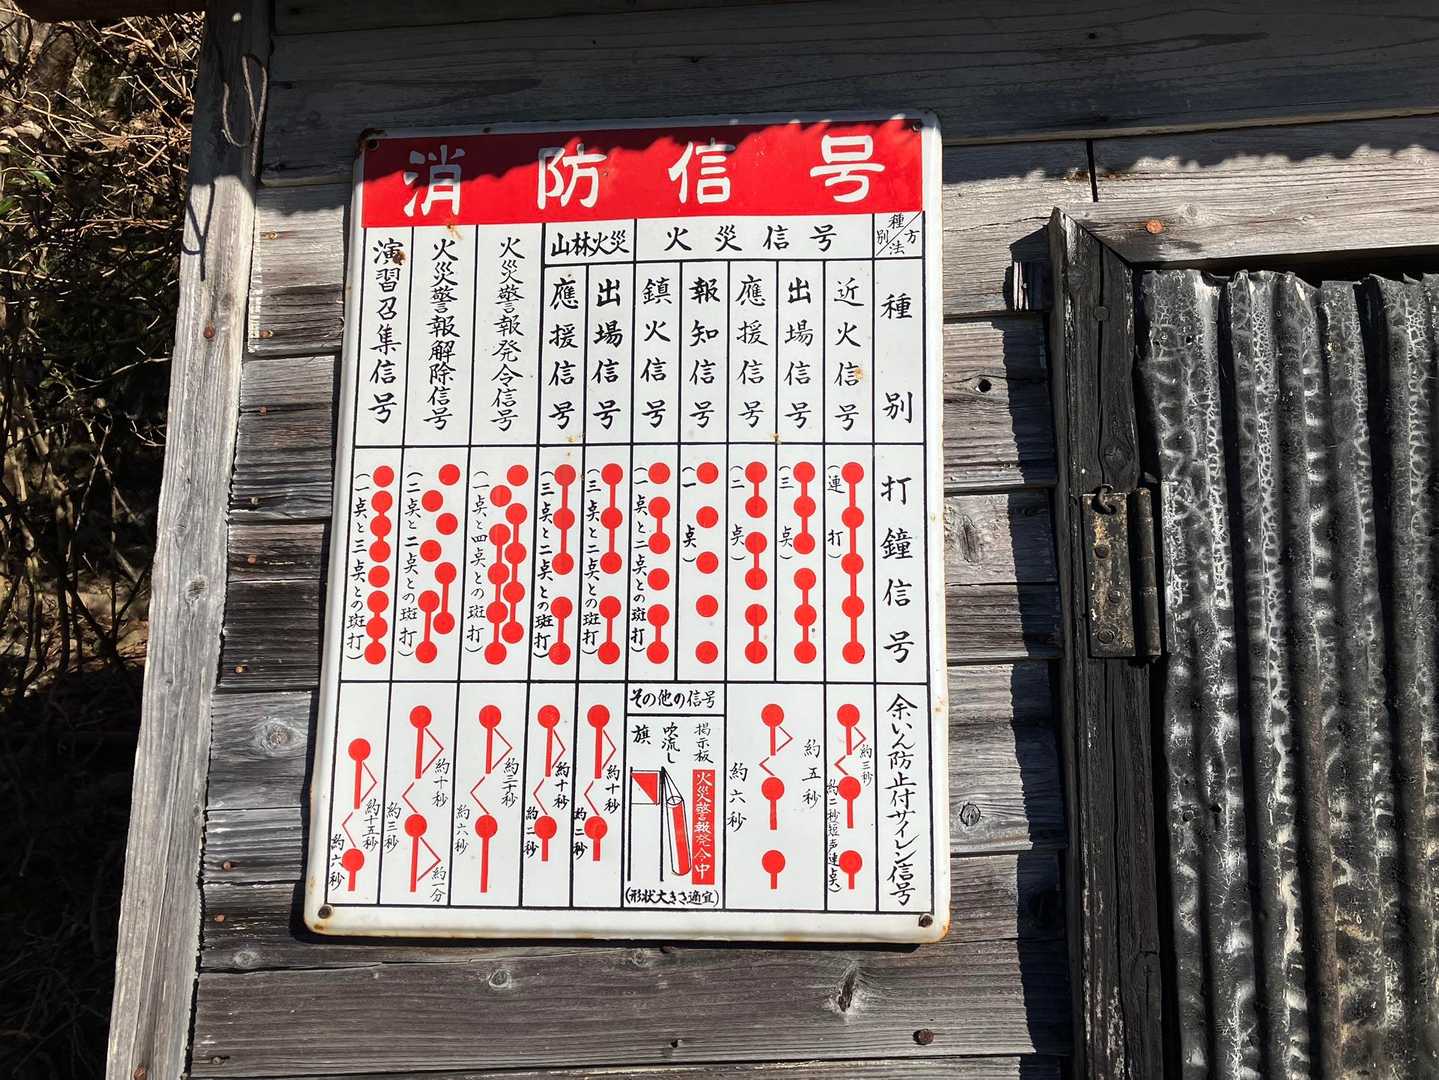 消防信号
方法
種別
種別
打鐘信号
余いん防止付サイレン信号
火災信号
近火信号
(連打)
約三秒
約二秒
短声連点)
出場信号
(三点)
應援信号
(二点)
約五秒
約六秒
報知信号
(一点)
鎮火信号
(一点と二点との斑打)
その他の信号
掲示板
吹流し
旗
火災警報発令中
(形状大きさ適宜)
山林火災
出場信号
(三点と二点との斑打)
約十秒
約二秒
應援信号
(三点と二点との斑打)
約十秒
約二秒
火災警報発令信号
(一点と四点との斑打)
約三十秒
約六秒
火災警報解除信号
(二点と二点との斑打)
約十秒
約三秒
約一分
演習召集信号
(一点と三点との斑打)
約十五秒
約六秒